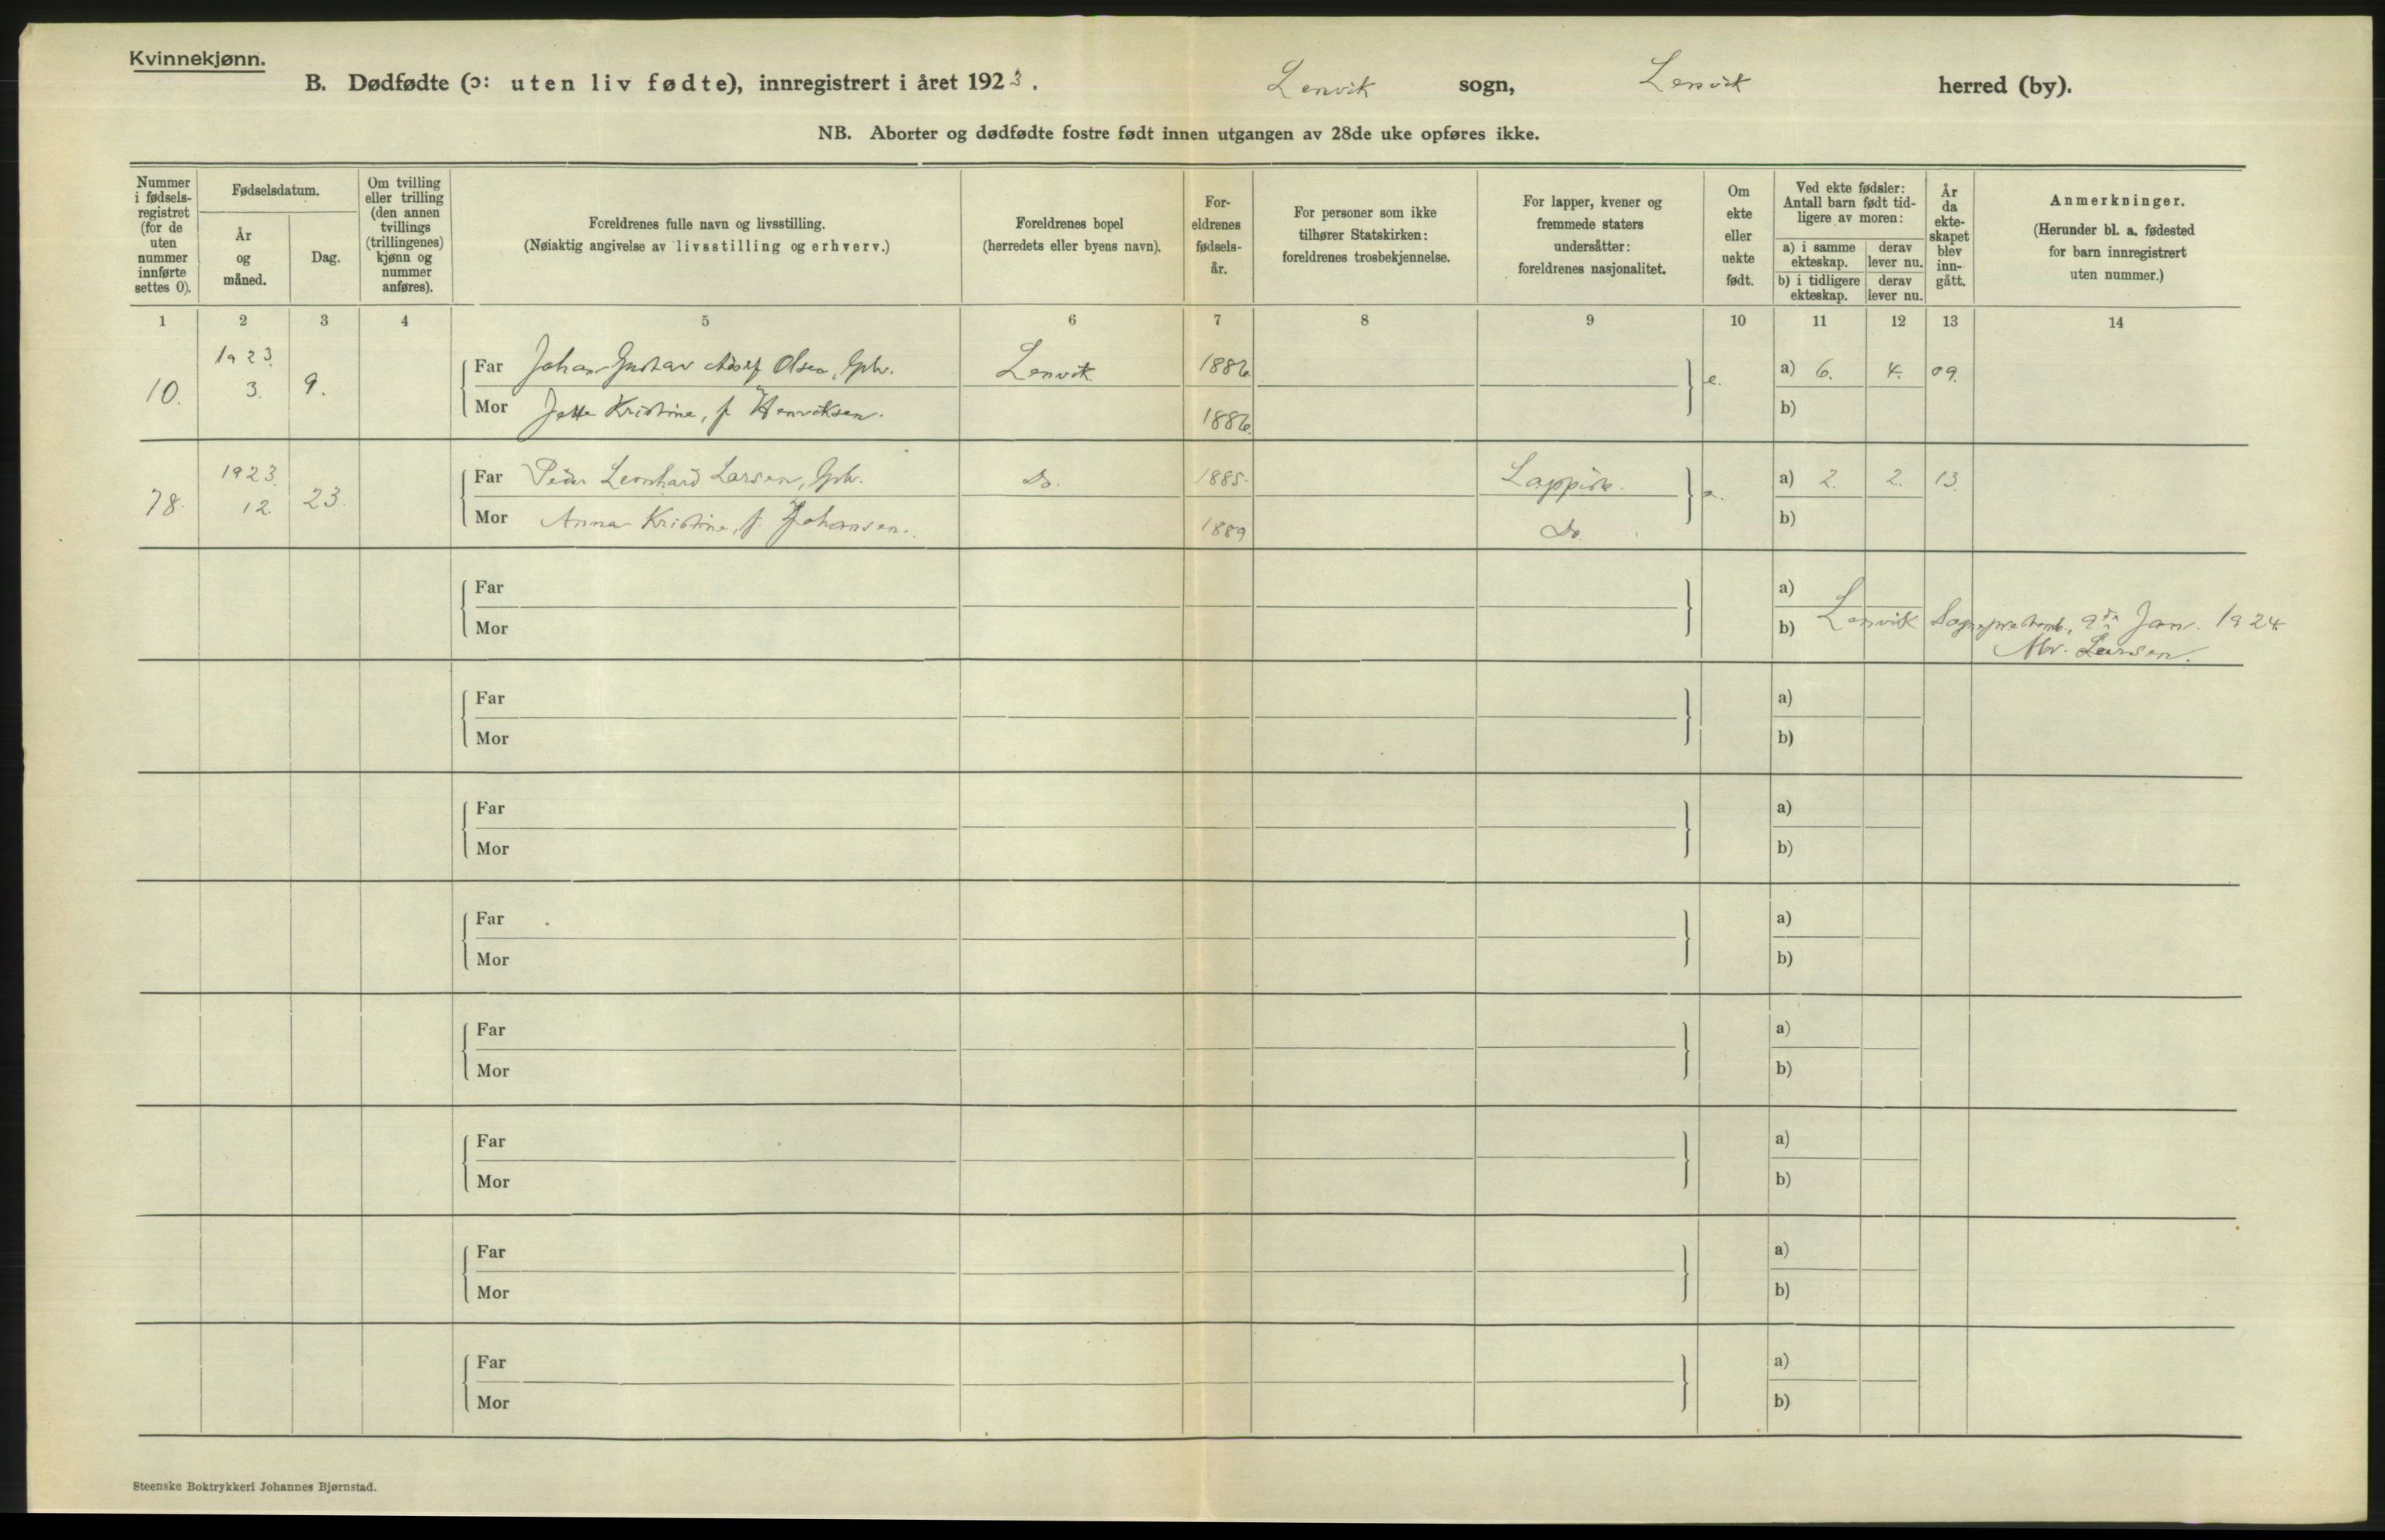 Kvinnekjønn.
B. Dødfødte (ɔ: uten liv fødte), innregistrert i året 1923. Lenvik sogn, Lenvik herred (by).
NB. Aborter og dødfødte fostre født innen utgangen av 28de uke opføres ikke.
Nummer i fødsels-registret (for de uten nummer innførte settes 0).
Fødselsdatum.
År og måned.
Dag.
Om tvilling eller trilling (den annen tvillings (trillingenes) kjønn og nummer anføres).
Foreldrenes fulle navn og livsstilling.
(Nøiaktig angivelse av livsstilling og erhverv.)
Foreldrenes bopel
(herredets eller byens navn).
For-eldrenes fødsels-år.
For personer som ikke tilhører Statskirken: foreldrenes trosbekjennelse.
For lapper, kvener og fremmede staters undersåtter: foreldrenes nasjonalitet.
Om ekte eller uekte født.
Ved ekte fødsler: Antall barn født tid-ligere av moren:
a) i samme ekteskap.
derav lever nu.
b) i tidligere ekteskap.
derav lever nu.
År da ekte-skapet blev inn-gått.
Anmerkninger.
(Herunder bl. a. fødested for barn innregistrert uten nummer.)
1 2 3 4 5 6 7 8 9 10 11 12 13 14
10. 1923. 3. 9. Far Johan Gustav Adolf Olsen, Gbr. Lenvik 1886 e. a) 6. 4. 09.
Mor Jette Kristine, f. Henriksen. 1886. b)
78. 1923. 12. 23. Far Peder Leonhard Larsen, Gbr. Do. 1885. Lappisk. e. a) 2. 2. 13.
Mor Anna Kristine, f. Johansen. 1889 Do. b)
Far a)
Mor b) Lenvik Sogneprestemb., 9de Jan. 1924
Larsen.
Far a)
Mor b)
Far a)
Mor b)
Far a)
Mor b)
Far a)
Mor b)
Far a)
Mor b)
Far a)
Mor b)
Far a)
Mor b)
Steenske Boktrykkeri Johannes Bjørnstad.